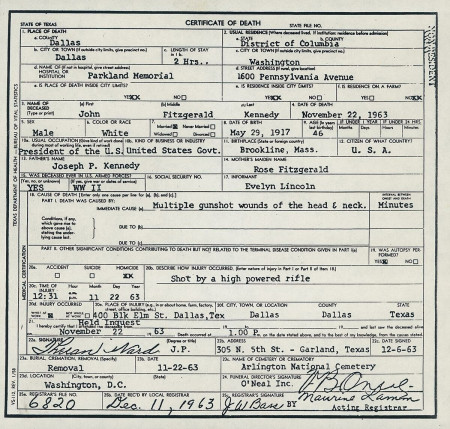 STATE OF TEXAS CERTIFICATE OF DEATH STATE FILE NO.
1. PLACE OF DEATH 2. USUAL RESIDENCE (Where deceased lived. If institution: residence before admission)
a. COUNTY a. STATE b. COUNTY
Dallas District of Columbia
b. CITY OR TOWN (If outside city limits, give precinct no.) c. LENGTH OF STAY c. CITY OR TOWN (If outside city limits, give precinct no.)
Dallas 2 Hrs.. Washington
d. NAME OF (If not in hospital, give street address) d. STREET ADDRESS (If rural, give location)
HOSPITAL OR INSTITUTION Parkland Memorial 1600 Pennsylvania Avenue
e. IS PLACE OF DEATH INSIDE CITY LIMITS? e. IS RESIDENCE INSIDE CITY LIMITS? f. IS RESIDENCE ON A FARM?
YES XX NO YES XX NO YES NO XX
3. NAME OF DECEASED (Type or print) (a) First (b) Middle (c) Last 4. DATE OF DEATH
John Fitzgerald Kennedy November 22, 1963
5. SEX 6. COLOR OR RACE 7. Married Never Married Widowed Divorced 8. DATE OF BIRTH 9. AGE IF UNDER 1 YEAR IF UNDER 24 HRS.
Male White May 29, 1917 46 Months Days Hours Min.
10a. USUAL OCCUPATION 10b. KIND OF BUSINESS OR INDUSTRY 11. BIRTHPLACE (State or foreign country) 12. CITIZEN OF WHAT COUNTRY?
President of the U.S. United States Govt. Brookline, Mass. U. S. A.
13. FATHER'S NAME 14. MOTHER'S MAIDEN NAME
Joseph P. Kennedy Rose Fitzgerald
15. WAS DECEASED EVER IN U.S. ARMED FORCES? 16. SOCIAL SECURITY NO. 17. INFORMANT
YES WW II Evelyn Lincoln
18. CAUSE OF DEATH [Enter only one cause per line for (a), (b), and (c).] INTERVAL BETWEEN ONSET AND DEATH
PART I. DEATH WAS CAUSED BY:
IMMEDIATE CAUSE (a) Multiple gunshot wounds of the head & neck. Minutes
Conditions, if any, which gave rise to above cause (a), stating the underlying cause last. DUE TO (b)
DUE TO (c)
PART II. OTHER SIGNIFICANT CONDITIONS CONTRIBUTING TO DEATH BUT NOT RELATED TO THE TERMINAL DISEASE CONDITION GIVEN IN PART I(a) 19. WAS AUTOPSY PERFORMED?
YES NO
20a. ACCIDENT SUICIDE HOMICIDE 20b. DESCRIBE HOW INJURY OCCURRED. (Enter nature of injury in Part I or Part II of item 18)
XX Shot by a high powered rifle
20c. TIME OF INJURY Hour Month Day Year
12:31 p.m. 11 22 63
20d. INJURY OCCURRED 20e. PLACE OF INJURY 20f. CITY, TOWN, OR LOCATION COUNTY STATE
400 Blk Elm St. Dallas,Tex Dallas Dallas Texas
21. Held Inquest
I hereby certify that November 22 , 63 Death occurred at 1:00 P. m. on the date stated above, and to the best of my knowledge, from the causes stated.
22a. SIGNATURE 22b. ADDRESS 22c. DATE SIGNED
Theran Ward J.P. 305 N. 5th St. - Garland, Texas 12-6-63
23a. BURIAL, CREMATION, REMOVAL (Specify) 23b. DATE 23c. NAME OF CEMETERY OR CREMATORY
Removal 11-22-63 Arlington National Cemetery
23d. LOCATION (City, town, or county) (State) 24. FUNERAL DIRECTOR'S SIGNATURE
Washington, D.C. O'Neal Inc.
25a. REGISTRAR'S FILE NO. 25b. DATE REC'D BY LOCAL REGISTRAR 25c. REGISTRAR'S SIGNATURE
6820 Dec. 11, 1963 J W Bass BY Acting Registrar
TEXAS DEPARTMENT OF HEALTH